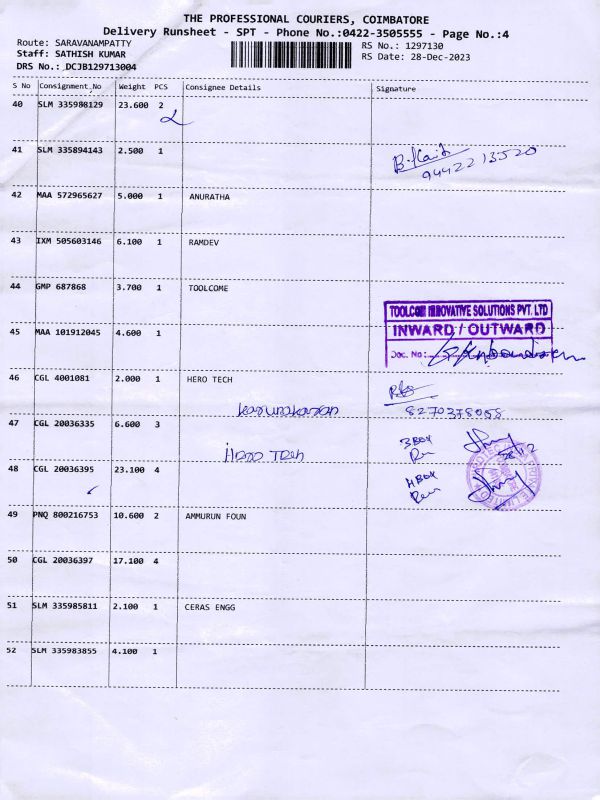 THE PROFESSIONAL COURIERS, COIMBATORE
Delivery Runsheet - SPT - Phone No.:0422-3505555 - Page No.:4
Route: SARAVANAMPATTY
Staff: SATHISH KUMAR
DRS No.: DCJB129713004
RS No.: 1297130
RS Date: 28-Dec-2023
S No Consignment.No Weight PCS Consignee Details Signature
40 SLM 335980129 23.600 2
2
41 SLM 335894143 2.500 1
9442213520
42 MAA 572965627 5.000 1 ANURATHA
43 IXM 505603146 6.100 1 RAMDEV
44 GMP 687868 3.700 1 TOOLCOME
TOOLCOM INNOVATIVE SOLUTIONS PVT. LTD
INWARD / OUTWARD
Doc. No:
45 MAA 101912045 4.600 1
46 CGL 4001081 2.000 1 HERO TECH
8270378058
47 CGL 20036335 6.600 3
3 BOX
28/12
48 CGL 20036395 23.100 4
4 BOX
49 PNQ 800216753 10.600 2 AMMURUN FOUN
50 CGL 20036397 17.100 4
51 SLM 335985811 2.100 1 CERAS ENGG
52 SLM 335983855 4.100 1